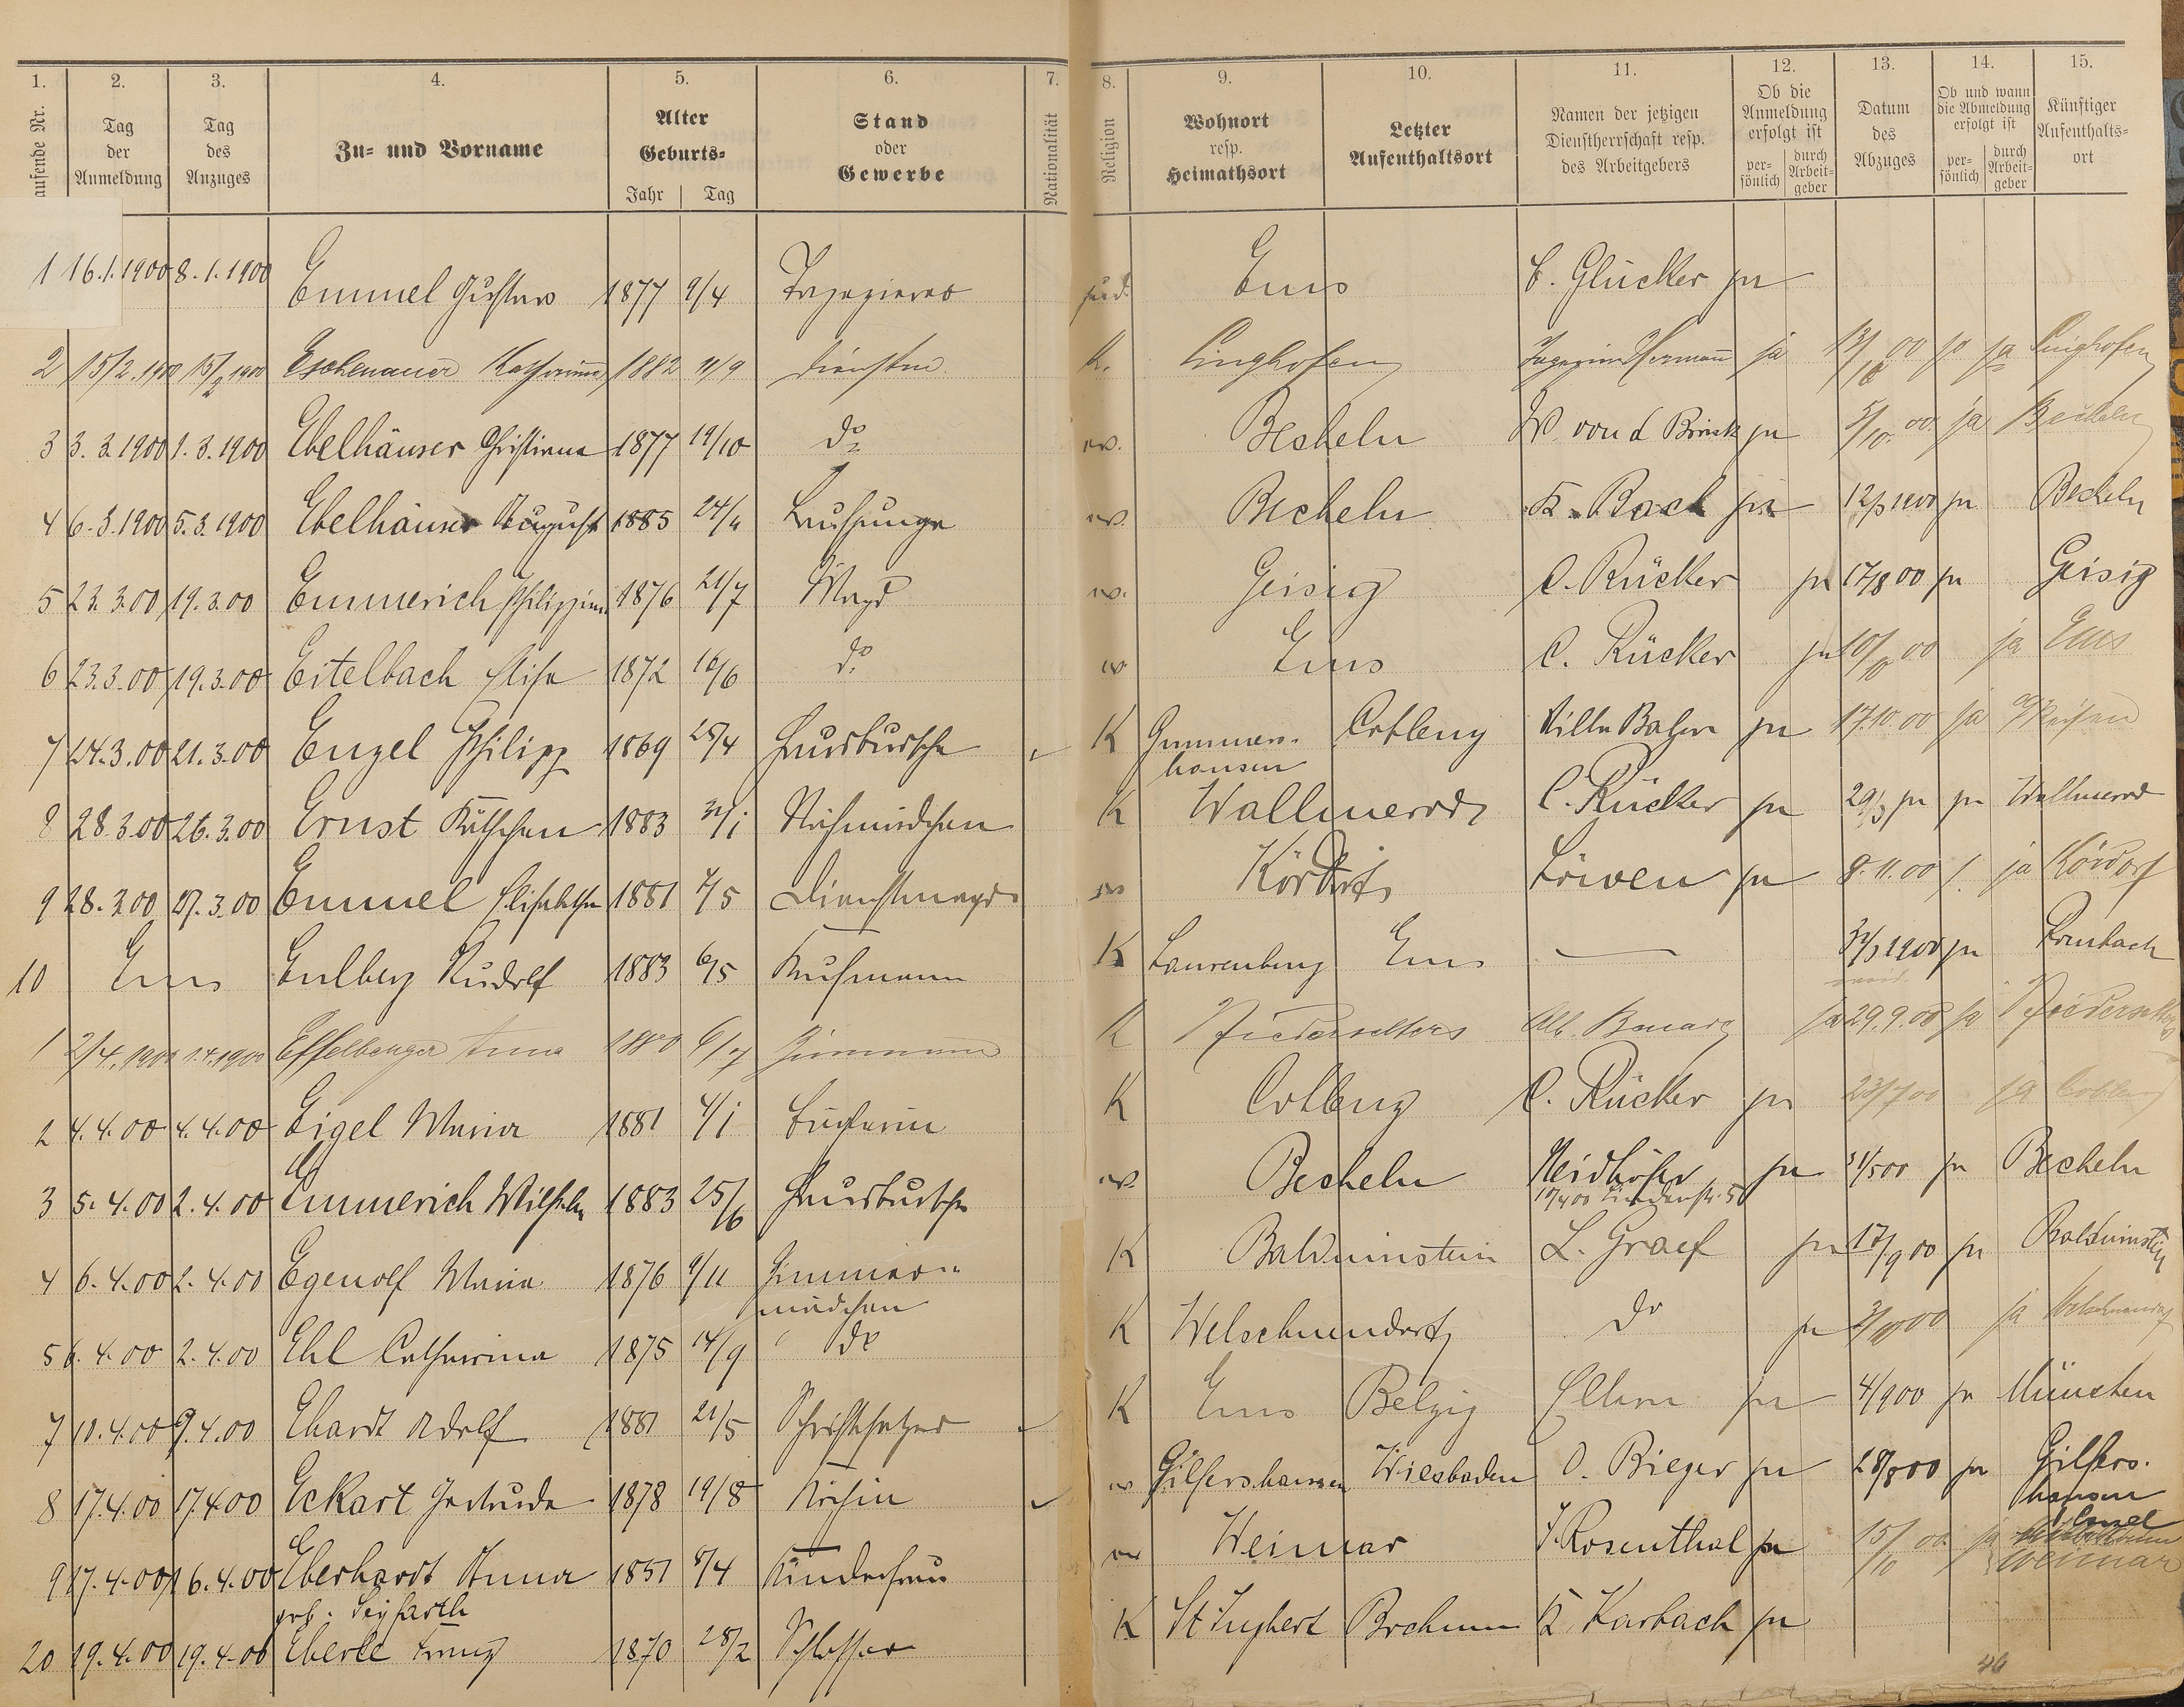 1. 2. 3. 4. 5. 6. 7. 8. 9. 10. 11. 12. 13. 14. 15.
aufende Nr.
Tag der Anmeldung
Tag des Anzuges
Zu- und Vorname
Alter Geburts- Jahr Tag
Stand oder Gewerbe
Nationalität
Religion
Wohnort resp. Heimathsort
Letzter Aufenthaltsort
Namen der jetzigen Dienstherrschaft resp. des Arbeitgebers
Ob die Anmeldung erfolgt ist persönlich durch Arbeitgeber
Datum des Abzuges
Ob und wann die Abmeldung erfolgt ist persönlich durch Arbeitgeber
Künftiger Aufenthaltsort
1 16.1.1900 8.1.1900 Emmel Gustav 1877 9/4 Tapezierer Ems Glücker ja
2 15/2.1900 15/2 1900 Eschenauer Katharina 1882 11/9 K. Singhofen Hermann ja 00 ja Singhofen
3 3.3.1900 1.3.1900 Ebelhäuser Christiana 1877 19/10 do ev. Becheln W. von d Brinck ja 5/10.00 ja Becheln
4 6.3.1900 5.3.1900 Ebelhäuser August 1885 24/4 Laufjunge ev. Becheln K. Bach ja 12/3 1900 ja Becheln
5 23.3.00 19.3.00 Emmerich Philippine 1876 21/7 Magd ev. Geisig C. Rücker ja 17/8 00 ja Geisig
6 23.3.00 19.3.00 Eitelbach Elise 1872 16/6 do ev Ems C. Rücker ja 10/10 00 ja Ems
7 24.3.00 21.3.00 Enzel Philipp 1869 25/4 Hausbursche K Gummershausen Coblenz Villa Balzer ja 17.10.00 ja a/Reisen
8 28.3.00 26.3.00 Ernst Käthchen 1883 31/1 Nähmädchen K Wallmerod C. Rücker ja 29/3 ja ja Wallmerod
9 28.3.00 27.3.00 Emmel Elisabethe 1881 7/5 Dienstmagd ev Kördorf Löwen ja 8.11.00 ja Kördorf
10 Ems Eulberg Rudolf 1883 6/5 Kaufmann K Laurenburg Ems — 1900 ja Rombach
1 2/4.1900 1.4.1900 Effelberger Anna 1880 6/7 K Niederselters Alb. ja 29.9.00 ja Niederselters
2 4.4.00 4.4.00 Eigel Maria 1881 4/1 K Coblenz C. Rücker ja 23/7 00 ja Coblenz
3 5.4.00 2.4.00 Emmerich Wilhelm 1883 25/6 Hausbursche ev. Becheln Neidhöfer ja 31/5 00 ja Becheln
10/4 00 Lindenstr. 5
4 6.4.00 2.4.00 Egenolf Maria 1876 9/11 Zimmermädchen K Balduinstein L. Graef ja 17/9 00 ja Balduinstein
5 6.4.00 2.4.00 Ehl Catharina 1875 14/9 do K Welschneudorf do ja 3/10 00 ja Welschneudorf
7 10.4.00 9.4.00 Ehardt Adolf 1881 21/5 Schriftsetzer K Ems Belzig Eltern ja 4/9 00 ja München
8 17.4.00 17.4.00 Eckart Gertrude 1878 19/8 Köchin ev Gilfershausen Wiesbaden O. Bieger ja 28/8 00 ja Gilfershausen
9 17.4.00 16.4.00 Eberhardt Anna 1851 8/4 Kinderfrau ev Weimar J. Rosenthal ja 15/10 00. ja Weimar
geb. Seyfarth
20 19.4.00 19.4.00 Eberle Franz 1870 28/2 Schlosser K St Ingbert Bochum K Karbach ja
46